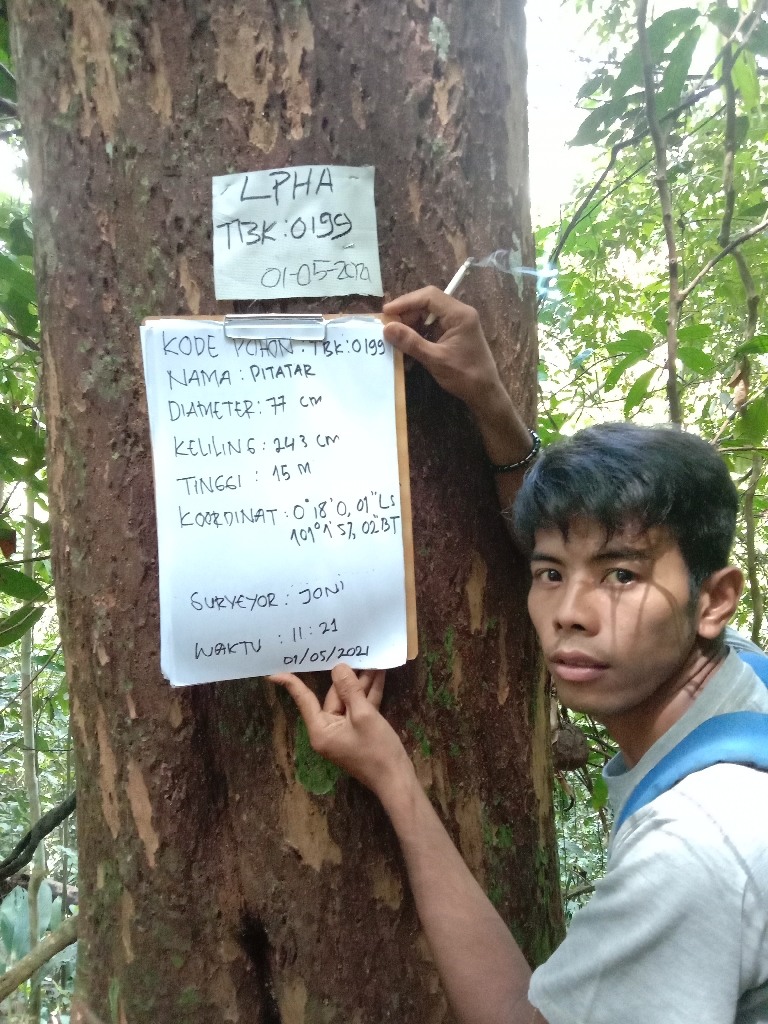 LPHA
TBK:0199
01-05-2021
KODE POHON : TBK:0199
NAMA : PITATAR
DIAMETER : 77 cm
KELILING : 243 cm
TINGGI : 15 M
KOORDINAT : 0° 18' 0,01" LS
101° 1' 57,02" BT
SURVEYOR : JONI
WAKTU : 11 : 21
01/05/2021